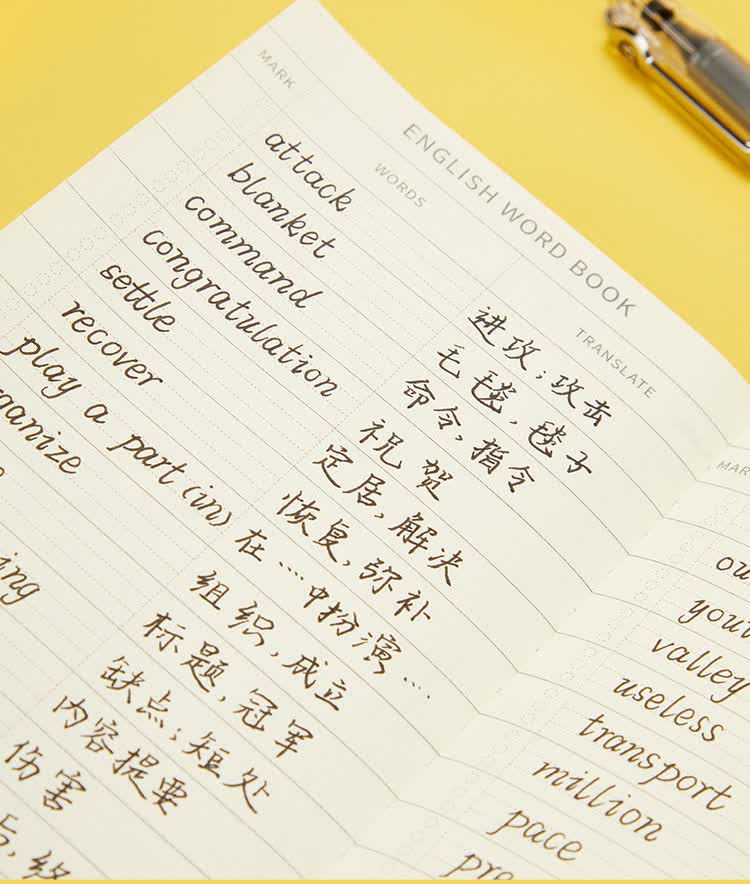 ENGLISH WORD BOOK
MARK
WORDS
TRANSLATE
attack
进攻;攻击
blanket
毛毯,毯子
command
命令,指令
congratulation
祝贺
settle
定居,解决
recover
恢复,弥补
play a part (in)
在…中扮演….
组织,成立
标题,冠军
缺点;短处
内容提要
伤害
valley
useless
transport
million
pace